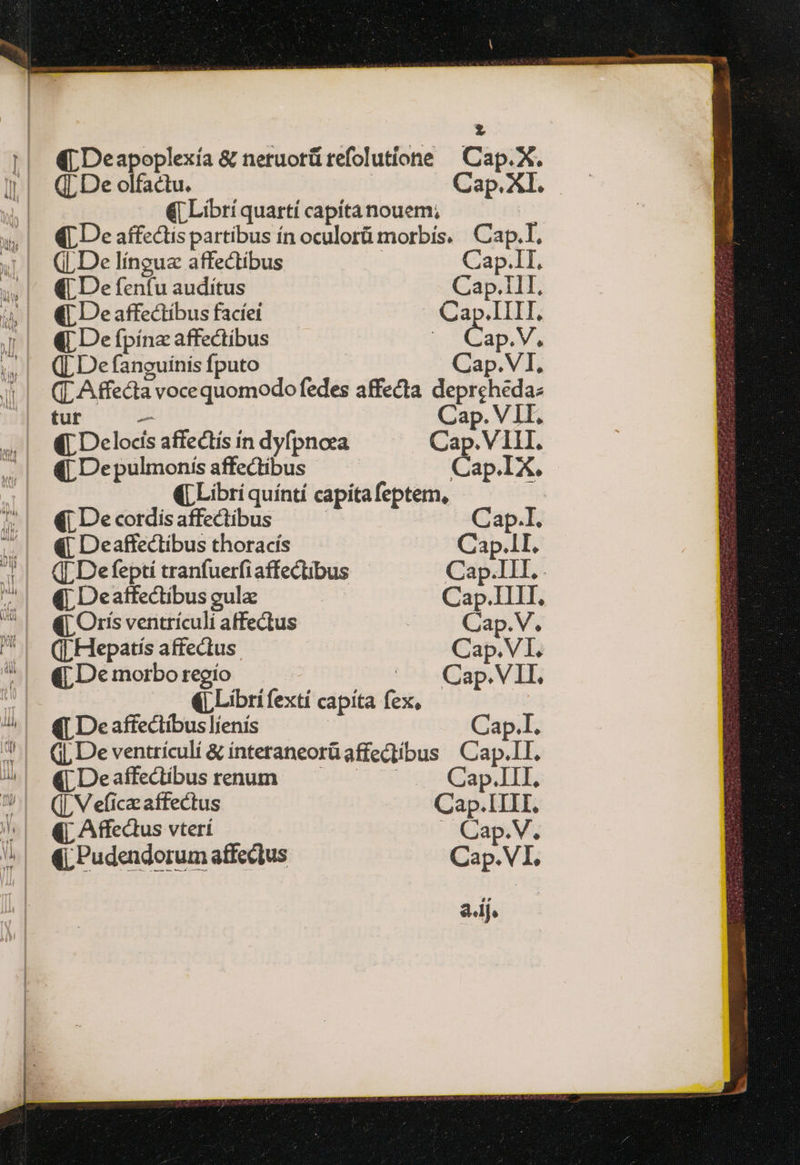 2
⸿ De apoplexía & neruorū reſolutíone Cap.X.
⸿ De olfactu. Cap.XI.
⸿ Líbrí quartí capíta nouem;
⸿ De affectís partíbus ín oculorū morbís. Cap.I.
⸿ De línguæ affectíbus Cap.II.
⸿ De ſenſu audítus Cap.III.
⸿ De affectíbus facíeí Cap.IIII.
⸿ De ſpínæ affectíbus Cap.V.
⸿ De ſanguínís ſputo Cap.VI.
⸿ Affecta voce quomodo ſedes affecta deprehēda⸗
tur Cap.VII.
⸿ De locís affectís ín dyſpnœa Cap.VIII.
⸿ De pulmonís affectíbus Cap.IX.
⸿ Líbrí quíntí capíta ſeptem,
⸿ De cordís affectíbus Cap.I.
⸿ De affectíbus thoracís Cap.II.
⸿ De ſeptí tranſuerſi affectíbus Cap.III.
⸿ De affectíbus gulæ Cap.IIII.
⸿ Orís ventrículí affectus Cap.V.
⸿ Hepatís affectus Cap.VI.
⸿ De morbo regío Cap.VII.
⸿ Líbrí ſextí capíta ſex,
⸿ De affectíbus líenís Cap.I.
⸿ De ventrículí & ínteraneorū affectíbus Cap.II.
⸿ De affectíbus renum Cap.III.
⸿ Veſicæ affectus Cap.IIII.
⸿ Affectus vterí Cap.V.
⸿ Pudendorum affectus Cap.VI.
a.ij.